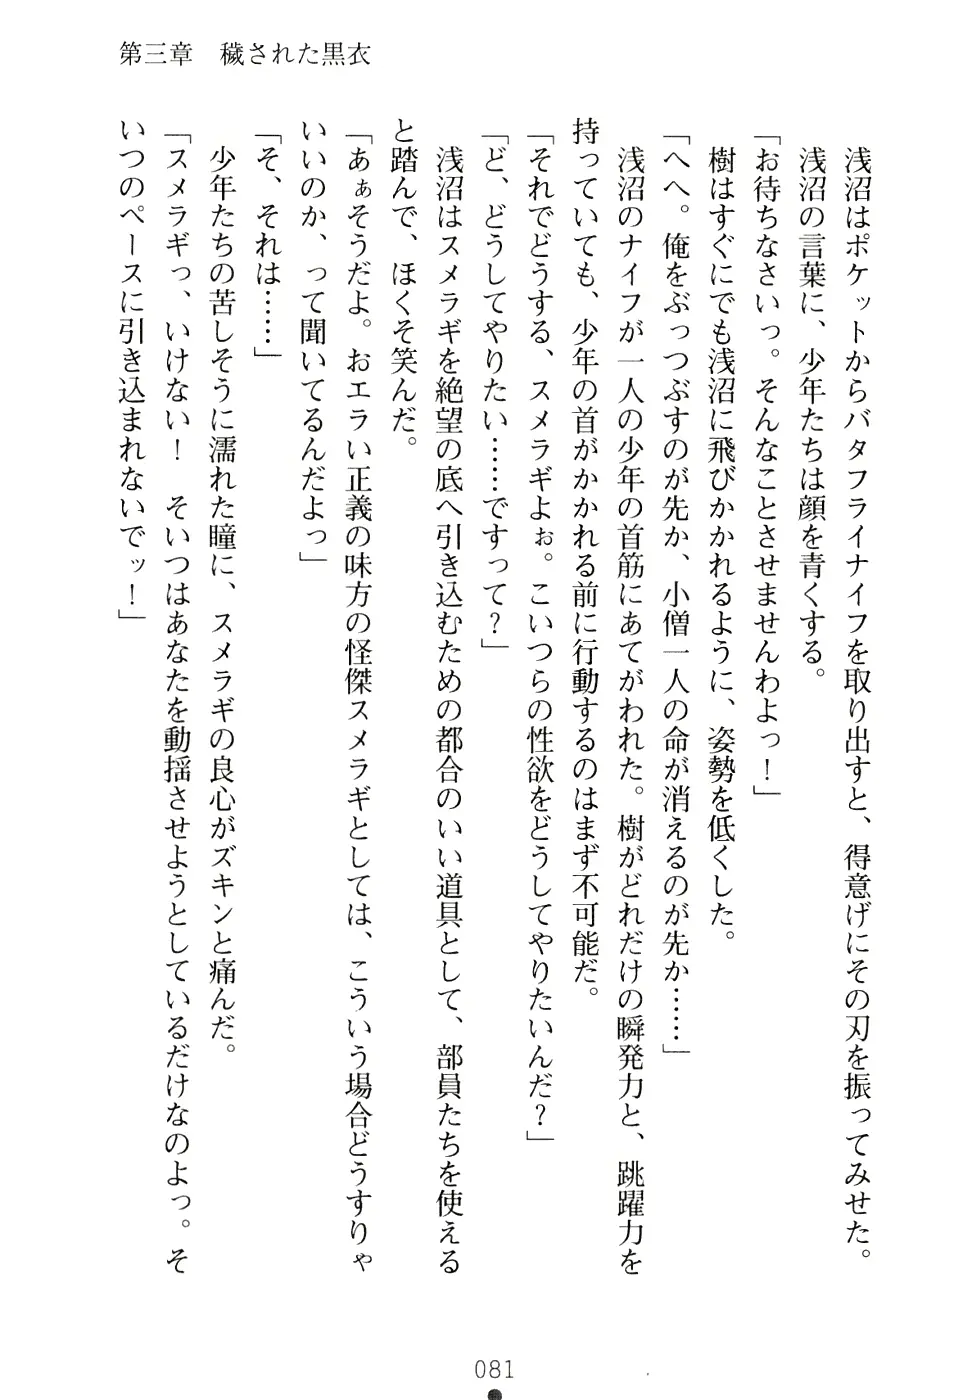 第三章　穢された黒衣
浅沼はポケットからバタフライナイフを取り出すと、得意げにその刃を振ってみせた。
浅沼の言葉に、少年たちは顔を青くする。
「お待ちなさいっ。そんなことさせませんわよっ！」
樹はすぐにでも浅沼に飛びかかれるように、姿勢を低くした。
「へへ。俺をぶっつぶすのが先か、小僧一人の命が消えるのが先か……」
浅沼のナイフが一人の少年の首筋にあてがわれた。樹がどれだけの瞬発力と、跳躍力を
持っていても、少年の首がかかれる前に行動するのはまず不可能だ。
「それでどうする、スメラギよぉ。こいつらの性欲をどうしてやりたいんだ？」
「ど、どうしてやりたい……ですって？」
浅沼はスメラギを絶望の底へ引き込むための都合のいい道具として、部員たちを使える
と踏んで、ほくそ笑んだ。
「あぁそうだよ。おエラい正義の味方の怪傑スメラギとしては、こういう場合どうすりゃ
いいのか、って聞いてるんだよっ」
「そ、それは……」
少年たちの苦しそうに濡れた瞳に、スメラギの良心がズキンと痛んだ。
「スメラギっ、いけない！　そいつはあなたを動揺させようとしているだけなのよっ。そ
いつのペースに引き込まれないでッ！」
081